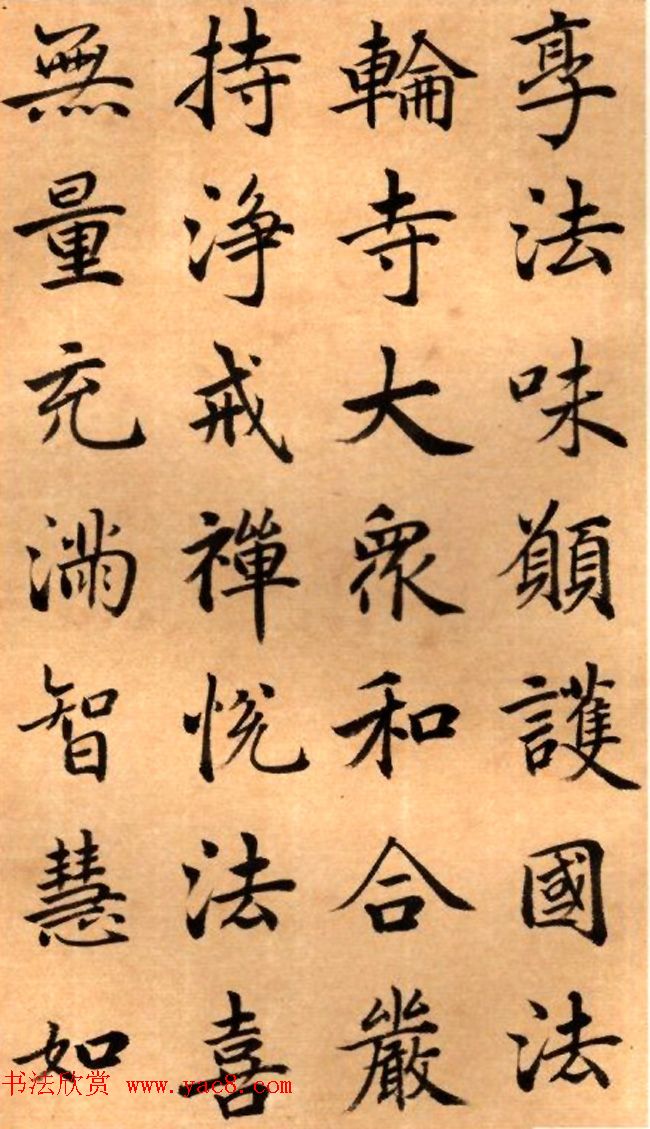 享法味願護國法
輪寺大眾和合嚴
持淨戒禪悅法喜
無量充滿智慧如
书法欣赏 www.yac8.com